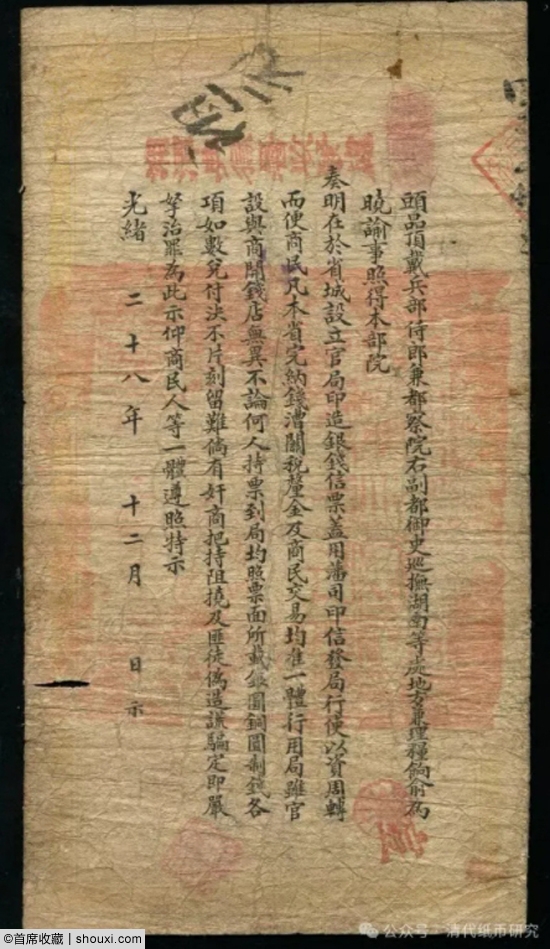 頭品頂戴兵部侍郎兼都察院右副都御史巡撫湖南等處地方兼理糧餉俞為
曉諭事照得本部院
奏明在於省城設立官局印造銀錢信票蓋用藩司印信發局行使以資周轉
而便商民凡本省完納錢漕關稅釐金及商民交易均准一體行用局雖官
設與商開錢店無異不論何人持票到局均照票面所載銀圓銅圓制錢各
項如數兌付決不片刻留難倘有奸商把持阻撓及匪徒偽造誆騙定即嚴
拏治罪為此示仰商民人等一體遵照特示
光緒 二十八年 十二月 日示
©首席收藏 | shouxi.com
公众号 · 清代纸币研究